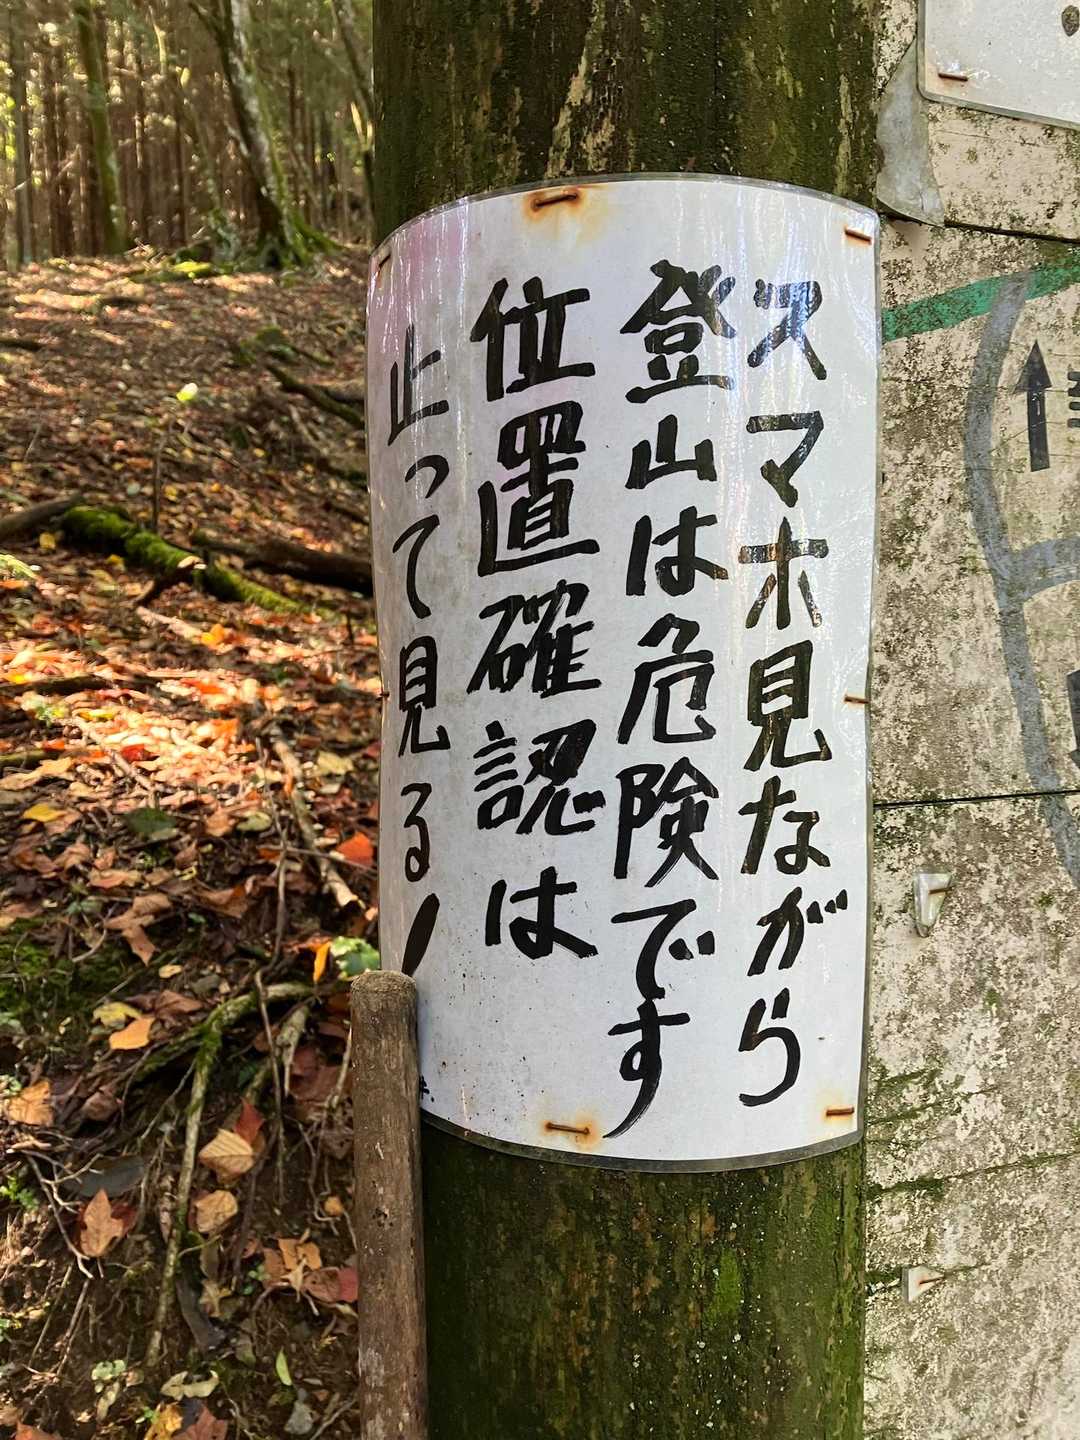 スマホ見ながら
登山は危険です
位置確認は
止って見る!